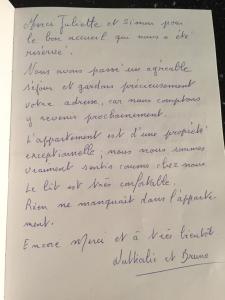 Merci Juliette et Simon pour
le bon accueil qui nous a été
réservé.
Nous avons passé un agréable
séjour et gardons précieusement
votre adresse, car nous comptons
y revenir prochainement.
L'appartement est d'une propreté
exceptionnelle, nous nous sommes
vraiment sentis comme chez nous.
Le lit est très confortable.
Rien ne manquait dans l'apparte-
ment.
Encore Merci et à très bientôt
Nathalie et Bruno